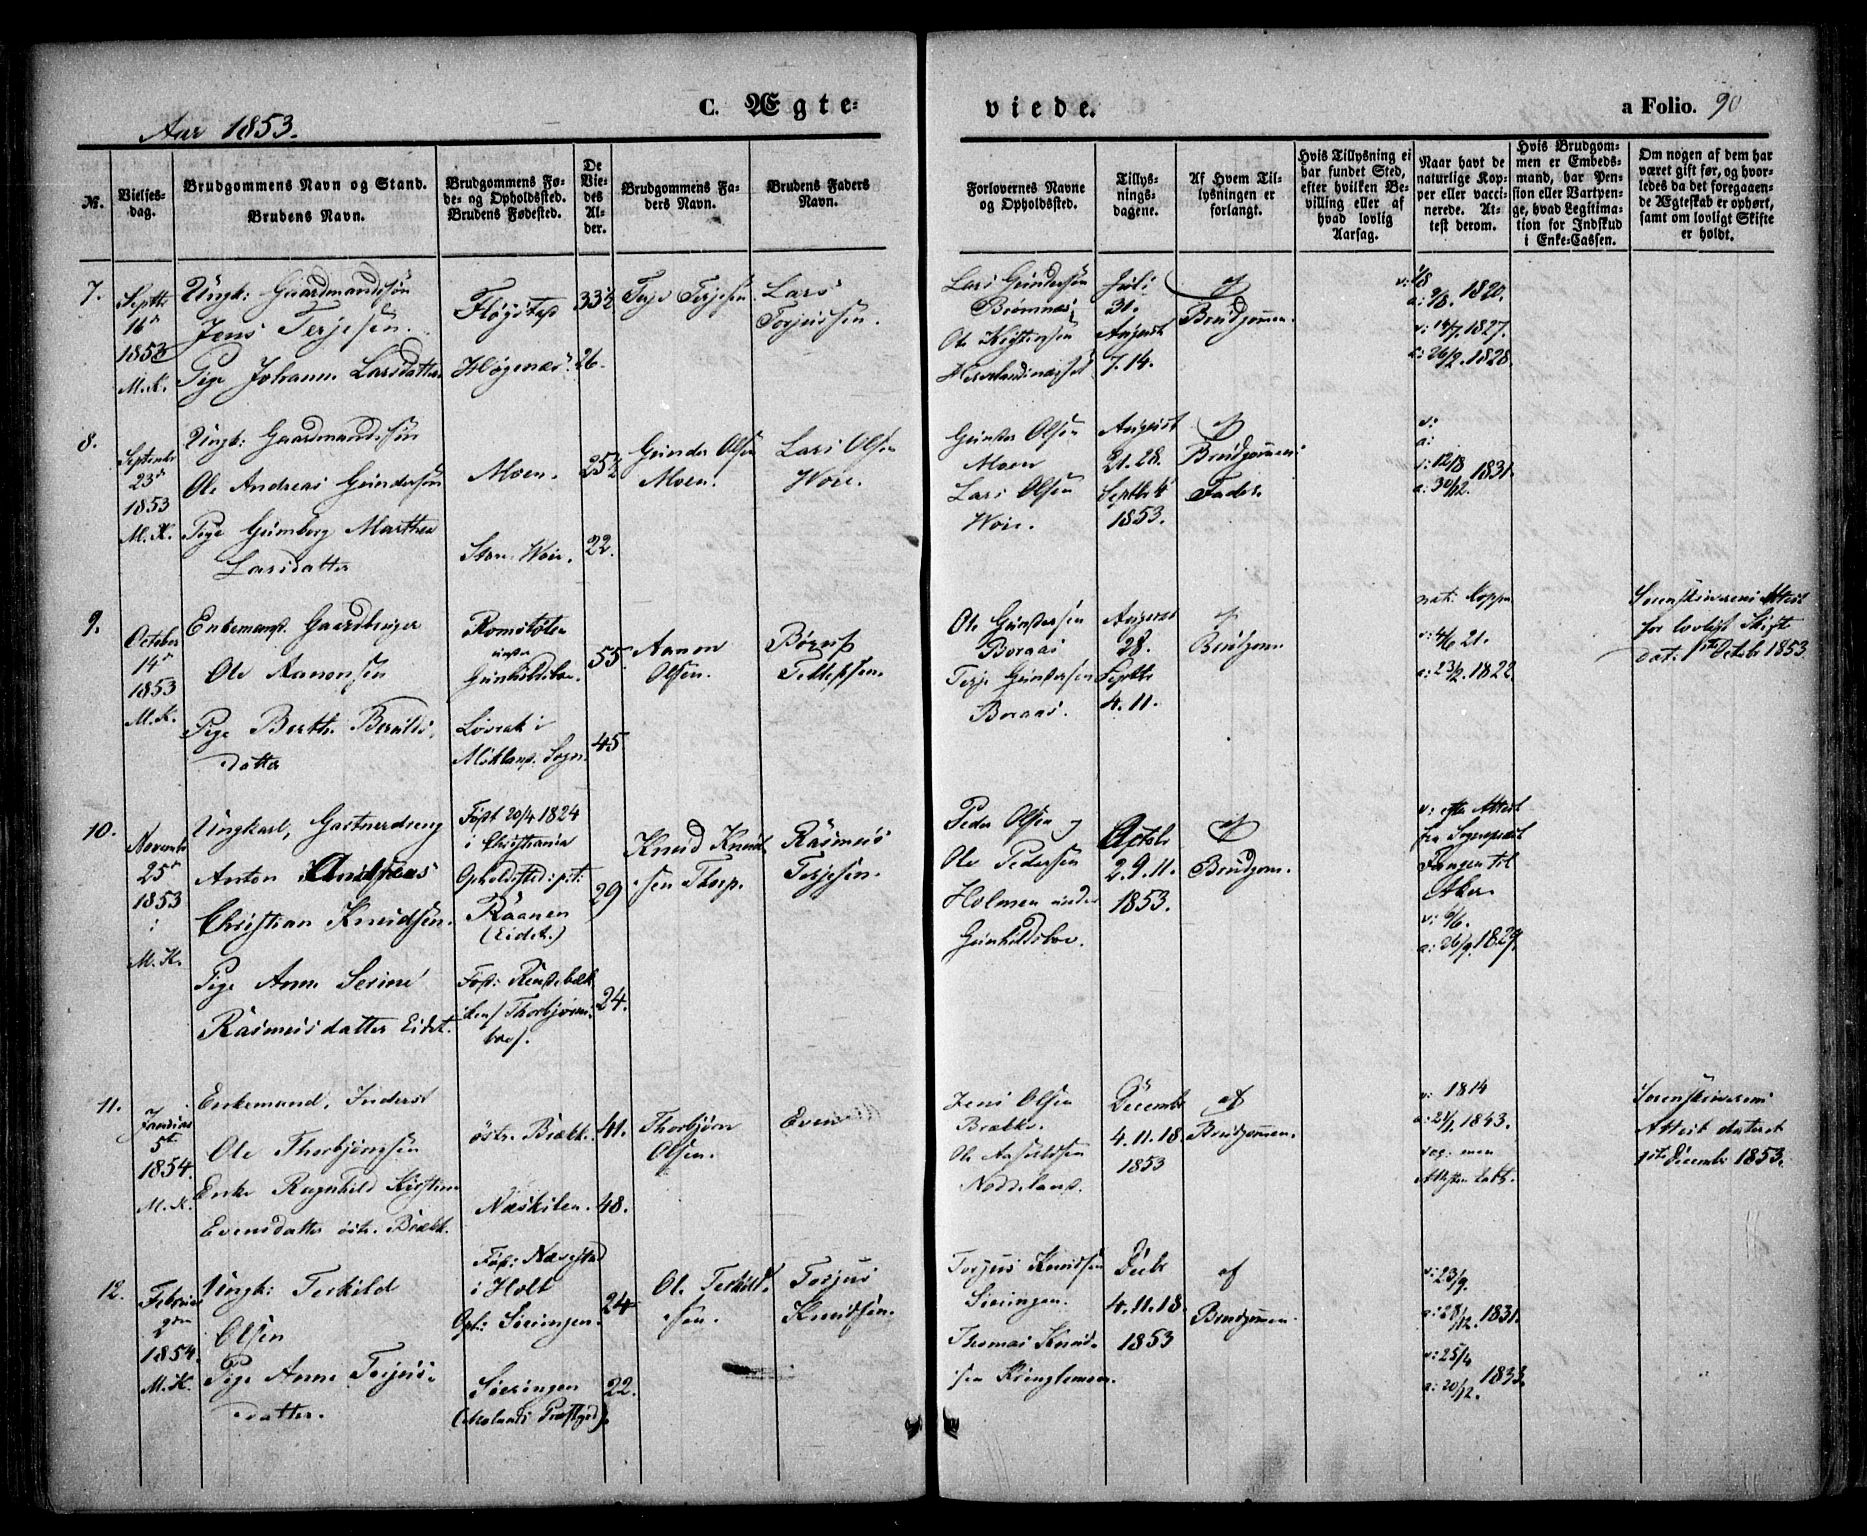 C. Ægte-
viede.
a Folio. 90
Aar 1853.
No.
Vielses-
dag.
Brudgommens Navn og Stand.
Brudens Navn.
Brudgommens Fø-
de- og Opholdsted.
Brudens Fødested.
De
Vie-
des
Al-
der.
Brudgommens Fa-
ders Navn.
Brudens Faders
Navn.
Forlovernes Navne
og Opholdsted.
Tillys-
nings-
dagene.
Af Hvem Til-
lysningen er
forlangt.
Hvis Tillysning ei
har fundet Sted,
efter hvilken Be-
villing eller af
hvad lovlig
Aarsag.
Naar havt de
naturlige Kop-
per eller vacci-
nerede. At-
test derom.
Hvis Brudgom-
men er Embeds-
mand, har Pen-
sion eller Vartpen-
ge, hvad Legitima-
tion for Indskud
i Enke-Cassen.
Om nogen af dem har
været gift før, og hvor-
ledes da det foregaaen-
de Ægteskab er ophørt,
samt om lovligt Skifte
er holdt.
7.
Septbr
16de
1853
M.K.
Ungk: Gaardmandssøn
Jens Terjesen.
Pige Johanne Larsdatter
Fløgstad
Høgenæs
33½
26.
Terje Terjesen
Lars
Torjussen.
Lars Gundersen
Ole
Juli
31.
August
7. 14.
af
Brudgommen.
1820.
v: 14/7 1827.
a: 26/2. 1828.
8.
Septembr
23de
1853
M.K.
Ungk: Gaardmandssøn
Ole Andreas Gundersen
Pige Gunborg Marthea
Larsdatter
Moen.
Store Woie.
25½
22.
Gunder Olsen
Moen.
Lars Olsen
Woie.
Gunder Olsen
Moen
Lars Olsen
Woie.
August
21. 28.
Septbr 4
1853.
af
Brudgommens
Fader.
v:
a:
v: 12/8
a: 30/12. 1831.
9.
October
14de
1853
M.K.
Enkemand. Gaardbruger
Ole Aanonsen
Pige Berthe Berulfs-
datter
under
Gunhildsboe.
Løvrak i
Sogn.
55.
45
Aanon
Olsen.
Ole Gundersen
Boraas
Terje Gundersen
Boraas.
August
28.
Septbr
4. 11.
af
Brudgom
nat: Kopper
v: 4/6 21.
a: 23/2. 1822.
Sorenskriverens Attest
for lovligt Skifte
dat: 1ste Octobr 1853.
10.
Novembr
25de
1853
:
M.K.
Ungkarl, Gartnerdreng
Anton Andreas
Christian Knudsen.
Pige Anne Serine
Rasmusdatter Eidet.
Født 20/4 1824
i Christiania
Opholdsted: pt:
Raanen
(Eidet.)
Født:
29
24.
Knud Knud-
sen Thorp.
Rasmus
Terjesen.
Peder Olsen og
Ole Pedersen
Holmen under
Gunhildsboe.
Octobr
2. 9. 11.
1853.
af
Brudgom.
v: efter Attest
fra Sognepræst
til
Aker.
v: 6/6.
a: 26/9. 1829.
11.
Januar
5te
1854.
M.K.
Enkemand, Inderst
Ole Thorbjørnsen
Enke Ragnhild Kirstine
Evensdatter østr. Bræk.
østr. Bræk.
Næskilen.
41.
48.
Thorbjørn
Olsen.
Even
Jens Olsen
Brække.
Ole
Decembr
4. 11. 18.
1853
af
Brudgommen.
v: 1814
a: 21/1. 1843.
men
Attesten tabt.
Sorenskriverens
Attest dateret
1ste Decembr 1853.
12.
Februar
2den
1854.
M.K.
Ungk: Terkild
Olsen
Pige Anne Torjus-
datter.
Født: Næsgstad
i Holt
Oph: Søeringen.
Søeringen
(Molands Præstgjd).
24
22.
Ole Terkild-
sen.
Torjus
Knudsen.
Torjus Knudsen
Søeringen.
Thomas Knud-
sen
Decbr
4. 11. 18.
1853
af
Brudgommen.
v: 23/9.
a: 28/12. 1831.
v: 25/4
a: 20/12. 1833.